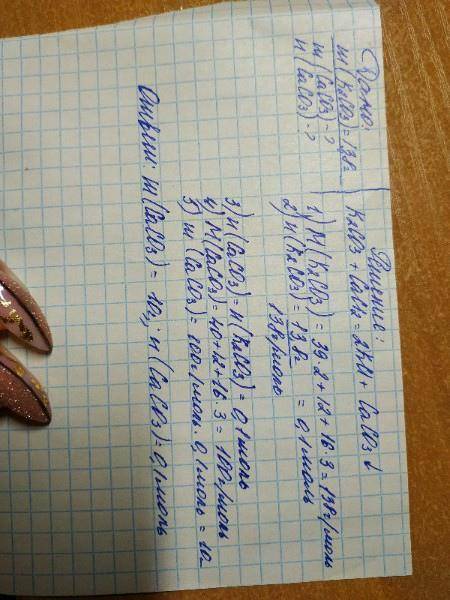 Дано:
m(K₂CO3) = 13,8г
m(CaCO3) - ?
n(CaCO3) - ?
Решение:
K₂CO3 + CaCl₂ = 2KCl + CaCO3↓
1) M(K₂CO3) = 39·2 + 12 + 16·3 = 138г/моль
2) n(K₂CO3) = 13,8г / 138г/моль = 0,1моль
3) n(CaCO3) = n(K₂CO3) = 0,1моль
4) M(CaCO3) = 40+12+16·3 = 100г/моль
5) m(CaCO3) = 100г/моль · 0,1моль = 10г
Ответ: m(CaCO3) = 10г; n(CaCO3) = 0,1моль